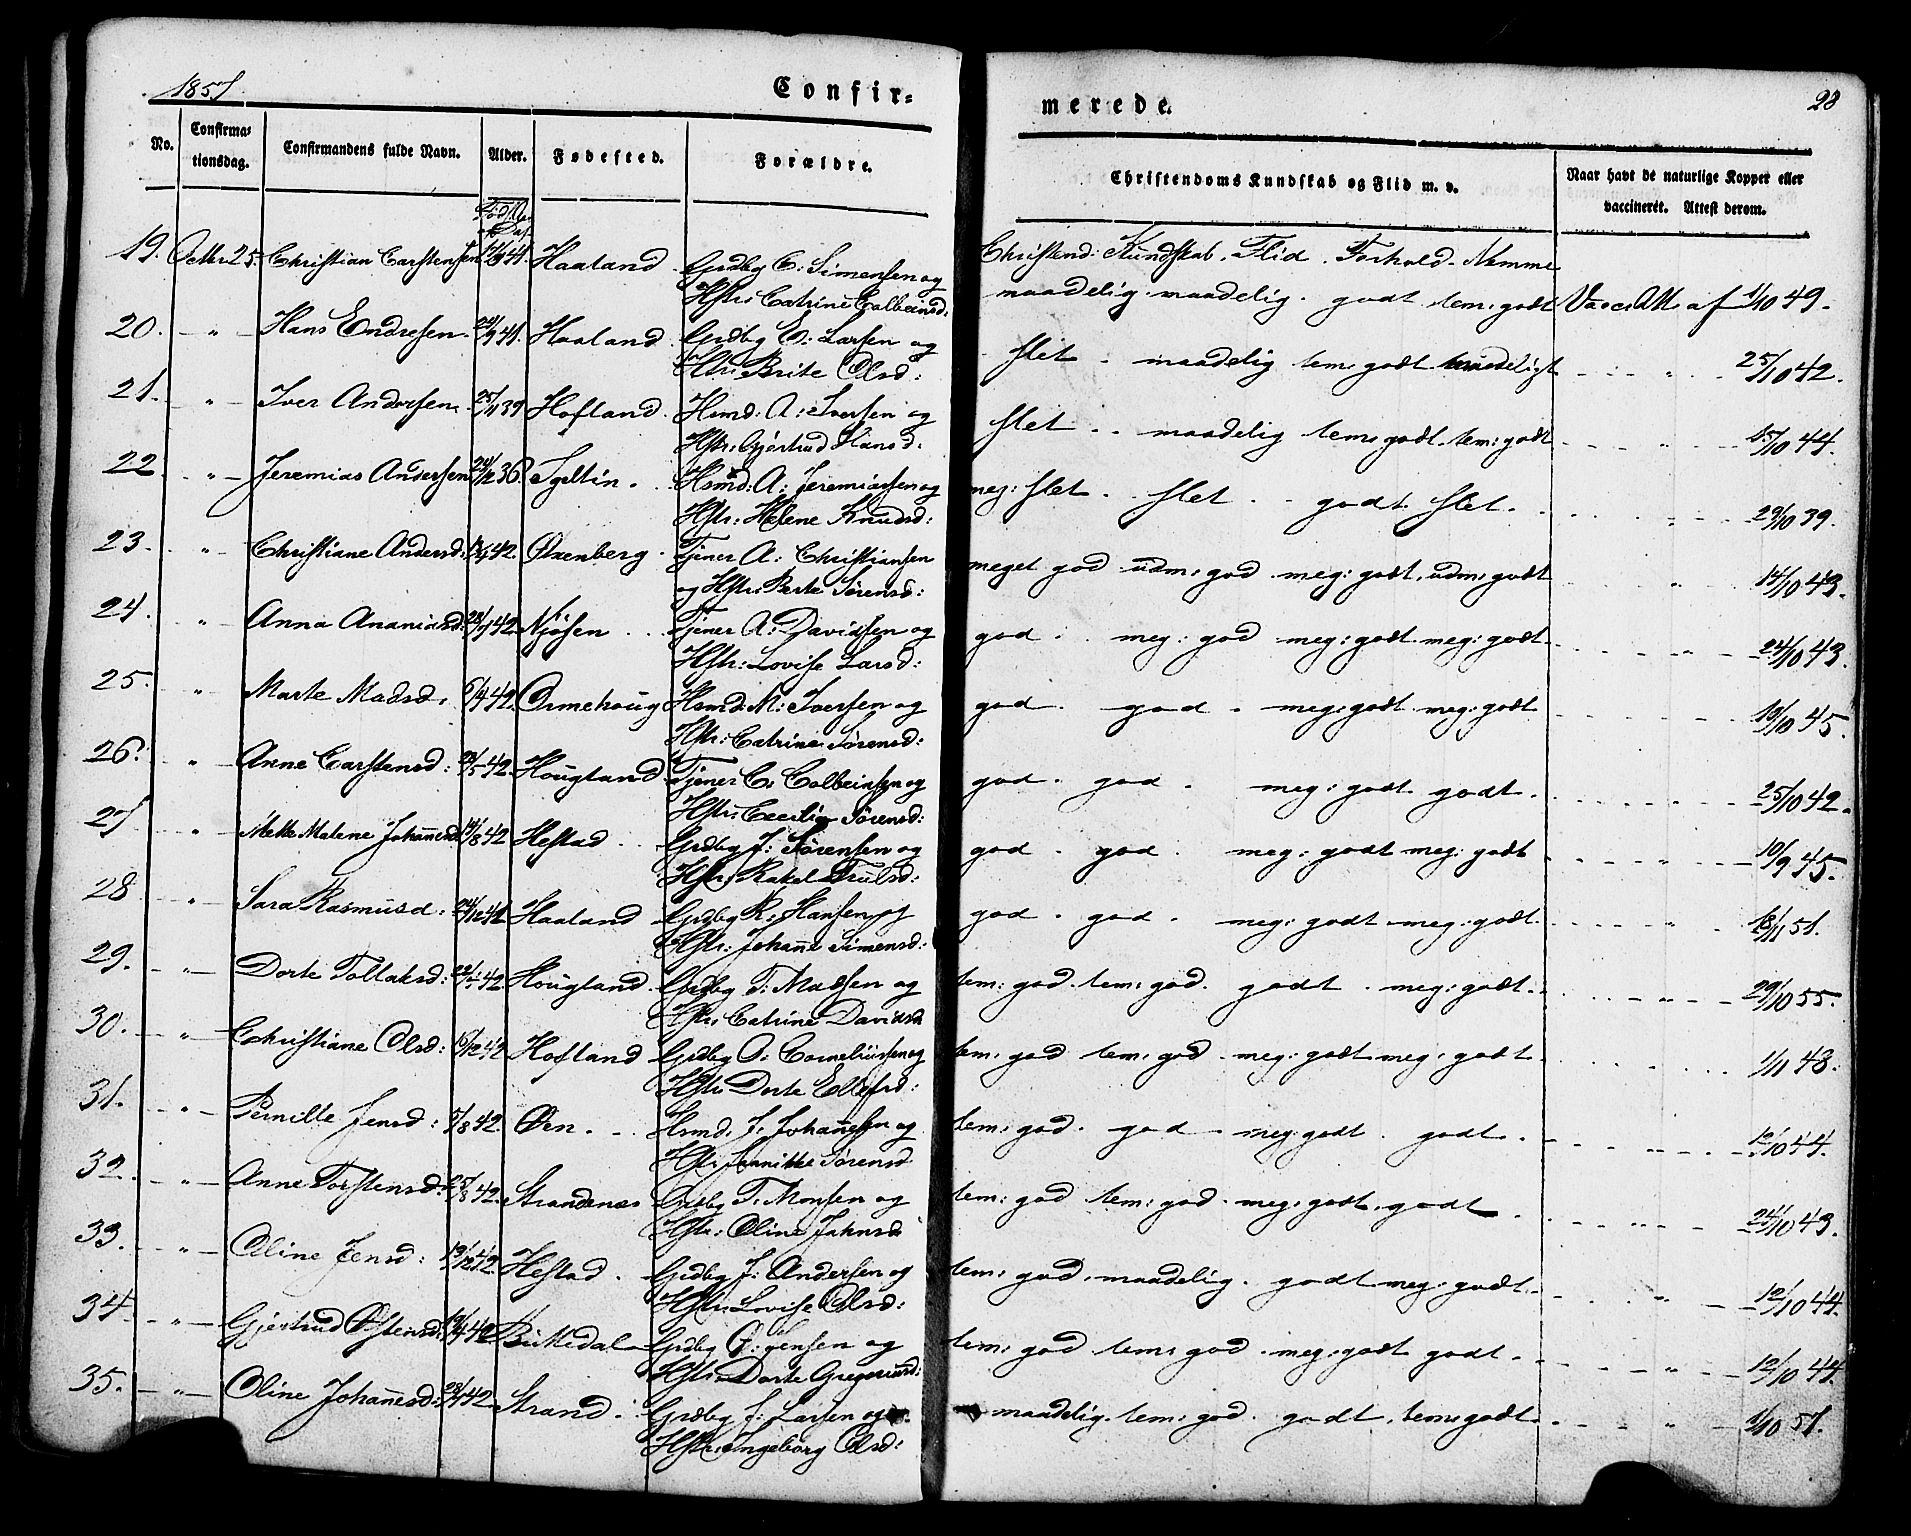 1857.
Confir-
merede.
28
No.
Confirma-
tionsdag.
Confirmandens fulde Navn.
Alder.
Fødested.
Forældre.
Christendoms Kundskab og Flid m. v.
Naar havt de naturlige Kopper eller
vaccineret. Attest derom.
19. Octbr 25. Christian Carstensen 41. Haaland. Grdbg C: Simensen og
Hstr: Catrine Colbeinsd:
Christend: Kundskab. Flid. Forhold. Nemme
maadelig. maadelig. godt tem: godt Vacc: Att af 1/10 49.
20. " Hans Endresen. 24/9 41. Haaland. Grdbg E: Larsen og
Hstr: Brite Olsd:
slet. maadelig tem: godt " 25/10 42.
21. " Iver Andersen. 25/11 39 Hofland. Hsmd: A: Iversen og
Hstr: Gjertrud Hansd:
slet. maadelig tem: godt. tem: godt " 15/10 44.
22 " Jeremias Andersen 36. Hsmd: A: Jeremiassen og
Hstr: Helene Knudsd:
meg: slet. slet. godt slet. " 29/10 39.
23. " Christiane Andersd: 42. Øxenberg. Tjener A: Christiansen
og Hstr: Berte Sørensd:
meget god udm: god meg: godt. udm: godt " 14/10 43.
24. " Anna Ananiasd: 42. Njøsen. Tjener A: Davidsen og
Hstr: Lovise Larsd:
god. meg: god meg: godt. meg: godt " 24/10 43.
25. " Marte Madsd. 6/4 42. Ørmehoug Hsmd. M: Iversen og
Hstr: Catrine Sørensd:
god. god. meg: godt meg: godt 45.
26. " Anne Carstensd: 5 42. Hougland Tjener C: Colbeinsen og
Hstr: Cecilie Sørensd:
god. god. meg: godt godt. 25/10 42.
27. " Mette Malene Johannesd: 8 42 Hestad. Grdbg J: Sørensen og
Hstr: Rakel Trulsd:
god. god. meg: godt meg: godt " 10/9 45.
28 " Sara Rasmusd: Haaland Grdbg R: Hansen og
Hstr: Johanne Simensd:
god. god. meg: godt meg: godt. " 11 51.
29. " Dorte Tollaksd: 42 Hougland. Grdbg T: Madsen og
Hstr: Catrine Davidsd
tem: god. tem: god. godt. meg: godt. " 29/10 55.
30. " Christiane Olsd: 42 Hofland Grdbg O: Corneliussen og
Hstr: Dorte Ellefsd:
tem: god tem: god. meg: godt meg: godt. 1/11 48.
31. " Pernille Jensd: 5/8 42. Øen. Hsmd. J: Johannesen og
Hstr: Sørensd
tem: god. god. meg: godt. godt. " 12/10 44.
32. " Anne Torstensd: 25/8 42. Strandenæs Grdbg T: Monsen og
Hstr: Oline Jahnsd
tem: god tem: god. meg: godt. godt. " 24/10 43.
33. " Oline Jensd: 42. Hestad. Grdbg J: Andersen og
Hstr: Lovise Olsd:
tem: god. maadelig. godt meg: godt. " 12/10 44.
34. " Gjertrud Østensd: 42 Birkedal Grdbg Ø: Jensen og
Hstr: Dorte Gregoriusd:
tem: god tem: god. meg: godt godt. " 12/10 44.
35. " Oline Johannesd: 42. Strand. Grdbg J: Larsen og
Hstr: Ingeborg Olsd:
maadelig. tem: god. godt. tem: godt. " 1/10 57.